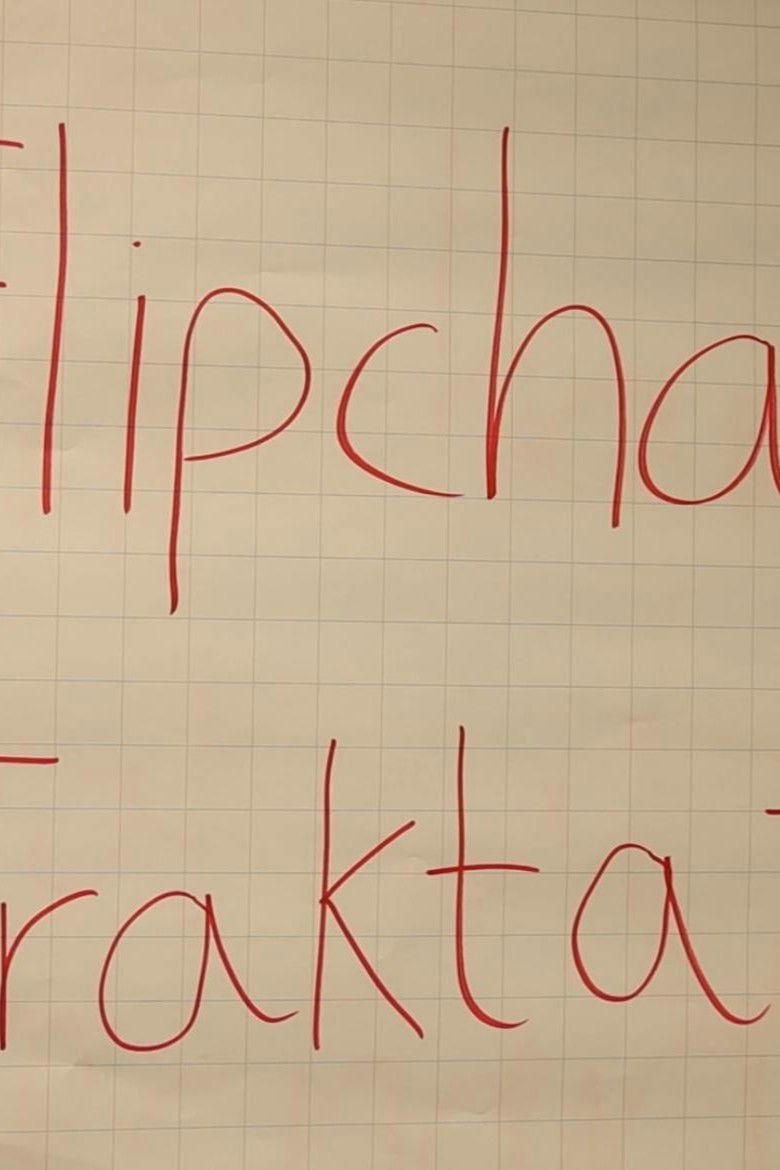 Flipcha
Trakta